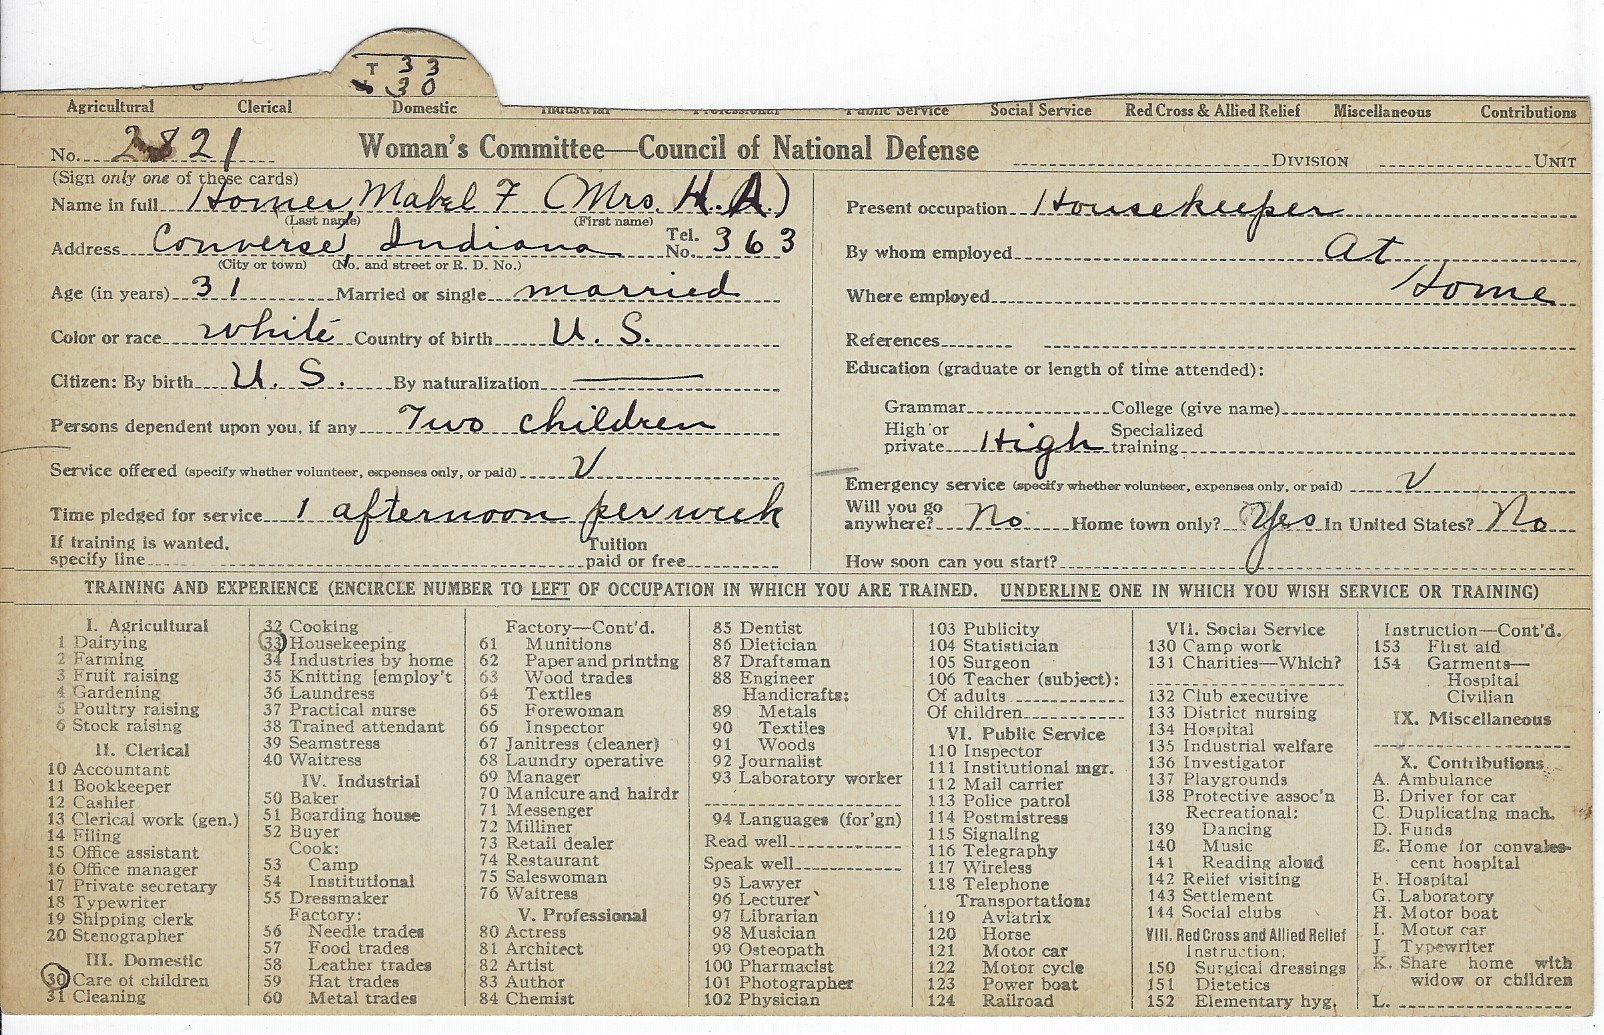 T 33
30
Agricultural Clerical Domestic Industrial Professional Public Service Social Service Red Cross & Allied Relief Miscellaneous Contributions
No. 2821 Woman's Committee—Council of National Defense DIVISION UNIT
(Sign only one of these cards)
Name in full Homer, Mabel F (Mrs. H. A.)
(Last name) (First name)
Address Converse, Indiana Tel. No. 363
(City or town) (No. and street or R. D. No.)
Age (in years) 31 Married or single married
Color or race white Country of birth U. S.
Citizen: By birth U. S. By naturalization
Persons dependent upon you, if any Two children
Service offered (specify whether volunteer, expenses only, or paid) V
Time pledged for service 1 afternoon per week
If training is wanted, specify line Tuition paid or free
Present occupation Housekeeper
By whom employed At
Where employed Home
References
Education (graduate or length of time attended):
Grammar College (give name)
High or private High Specialized training
Emergency service (specify whether volunteer, expenses only, or paid) V
Will you go anywhere? No Home town only? Yes In United States? No
How soon can you start?
TRAINING AND EXPERIENCE (ENCIRCLE NUMBER TO LEFT OF OCCUPATION IN WHICH YOU ARE TRAINED. UNDERLINE ONE IN WHICH YOU WISH SERVICE OR TRAINING)
I. Agricultural
1 Dairying
2 Farming
3 Fruit raising
4 Gardening
5 Poultry raising
6 Stock raising
II. Clerical
10 Accountant
11 Bookkeeper
12 Cashier
13 Clerical work (gen.)
14 Filing
15 Office assistant
16 Office manager
17 Private secretary
18 Typewriter
19 Shipping clerk
20 Stenographer
III. Domestic
30 Care of children
31 Cleaning
32 Cooking
33 Housekeeping
34 Industries by home
35 Knitting [employ't
36 Laundress
37 Practical nurse
38 Trained attendant
39 Seamstress
40 Waitress
IV. Industrial
50 Baker
51 Boarding house
52 Buyer
Cook:
53 Camp
54 Institutional
55 Dressmaker
Factory:
56 Needle trades
57 Food trades
58 Leather trades
59 Hat trades
60 Metal trades
Factory—Cont'd.
61 Munitions
62 Paper and printing
63 Wood trades
64 Textiles
65 Forewoman
66 Inspector
67 Janitress (cleaner)
68 Laundry operative
69 Manager
70 Manicure and hairdr
71 Messenger
72 Milliner
73 Retail dealer
74 Restaurant
75 Saleswoman
76 Waitress
V. Professional
80 Actress
81 Architect
82 Artist
83 Author
84 Chemist
85 Dentist
86 Dietician
87 Draftsman
88 Engineer
Handicrafts:
89 Metals
90 Textiles
91 Woods
92 Journalist
93 Laboratory worker
94 Languages (for'gn)
Read well
Speak well
95 Lawyer
96 Lecturer
97 Librarian
98 Musician
99 Osteopath
100 Pharmacist
101 Photographer
102 Physician
103 Publicity
104 Statistician
105 Surgeon
106 Teacher (subject):
Of adults
Of children
VI. Public Service
110 Inspector
111 Institutional mgr.
112 Mail carrier
113 Police patrol
114 Postmistress
115 Signaling
116 Telegraphy
117 Wireless
118 Telephone
Transportation:
119 Aviatrix
120 Horse
121 Motor car
122 Motor cycle
123 Power boat
124 Railroad
VII. Social Service
130 Camp work
131 Charities—Which?
132 Club executive
133 District nursing
134 Hospital
135 Industrial welfare
136 Investigator
137 Playgrounds
138 Protective assoc'n
Recreational:
139 Dancing
140 Music
141 Reading aloud
142 Relief visiting
143 Settlement
144 Social clubs
VIII. Red Cross and Allied Relief
Instruction:
150 Surgical dressings
151 Dietetics
152 Elementary hyg.
Instruction—Cont'd.
153 First aid
154 Garments—
Hospital
Civilian
IX. Miscellaneous
X. Contributions
A. Ambulance
B. Driver for car
C. Duplicating mach.
D. Funds
E. Home for convales-
cent hospital
F. Hospital
G. Laboratory
H. Motor boat
I. Motor car
J. Typewriter
K. Share home with
widow or children
L.